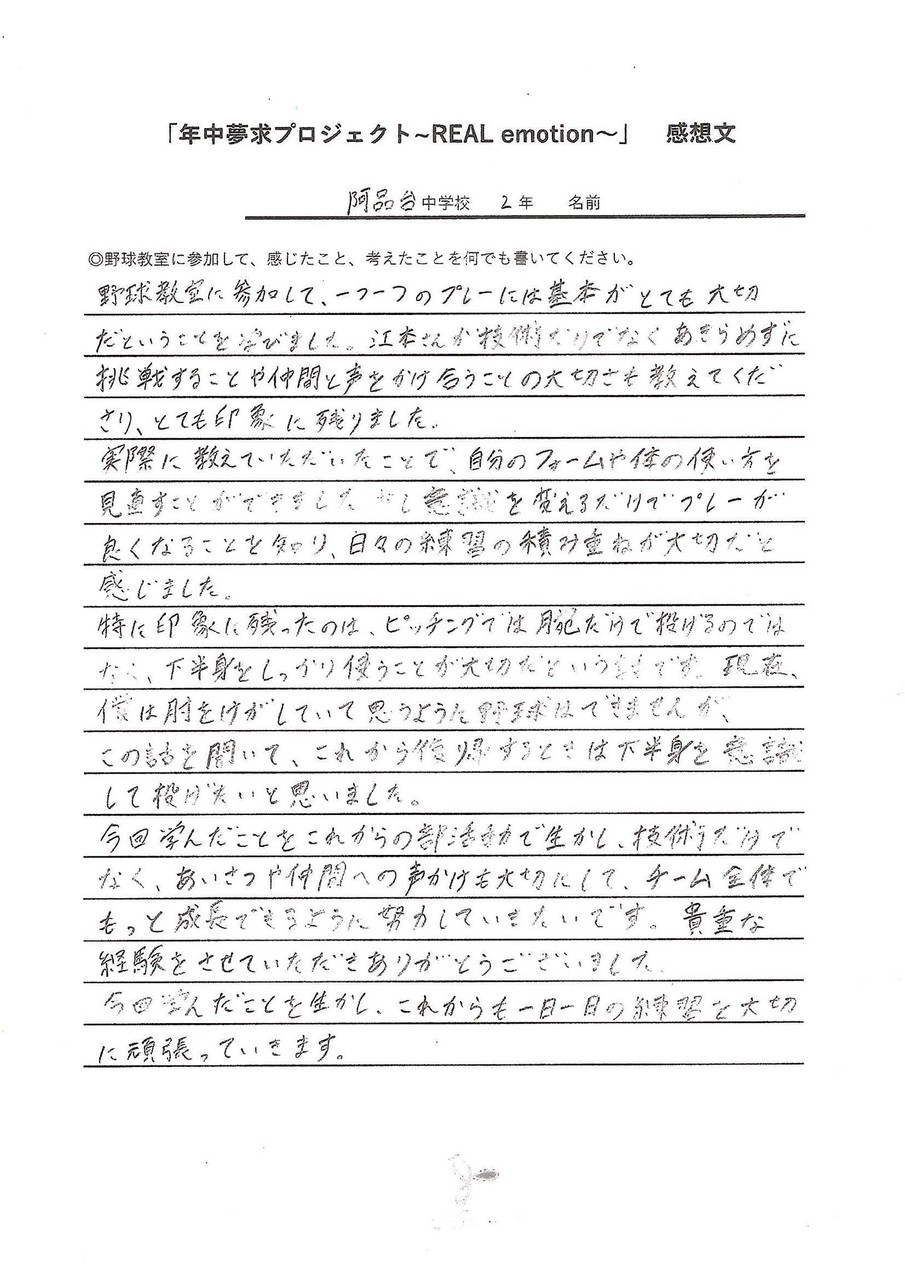 「年中夢求プロジェクト~REAL emotion～」　感想文
阿品台中学校　2年　名前
◎野球教室に参加して、感じたこと、考えたことを何でも書いてください。
野球教室に参加して、一つ一つのプレーには基本がとても大切
だということを学びました。江本さんが技術だけでなくあきらめずに
挑戦することや仲間と声をかけ合うことの大切さも教えてくだ
さり、とても印象に残りました。
実際に教えていただいたことで、自分のフォームや体の使い方を
見直すことができました 少し意識を変えるだけでプレーが
良くなることを知り、日々の練習の積み重ねが大切だと
感じました。
特に印象に残ったのは、ピッチングでは腕だけで投げるのでは
なく、下半身をしっかり使うことが大切だという です。現在、
僕は肘をけがしていて思うような野球はできませんが、
この話を聞いて、これから復帰するときは下半身を意識
して投げたいと思いました。
今回学んだことをこれからの部活動で生かし、技術だけで
なく、あいさつや仲間への声かけも大切にして、チーム全体で
もっと成長できるように努力していきたいです。貴重な
経験をさせていただきありがとうございました.
今回学んだことを生かし、これからも一日一日の練習を大切
に頑張っていきます。